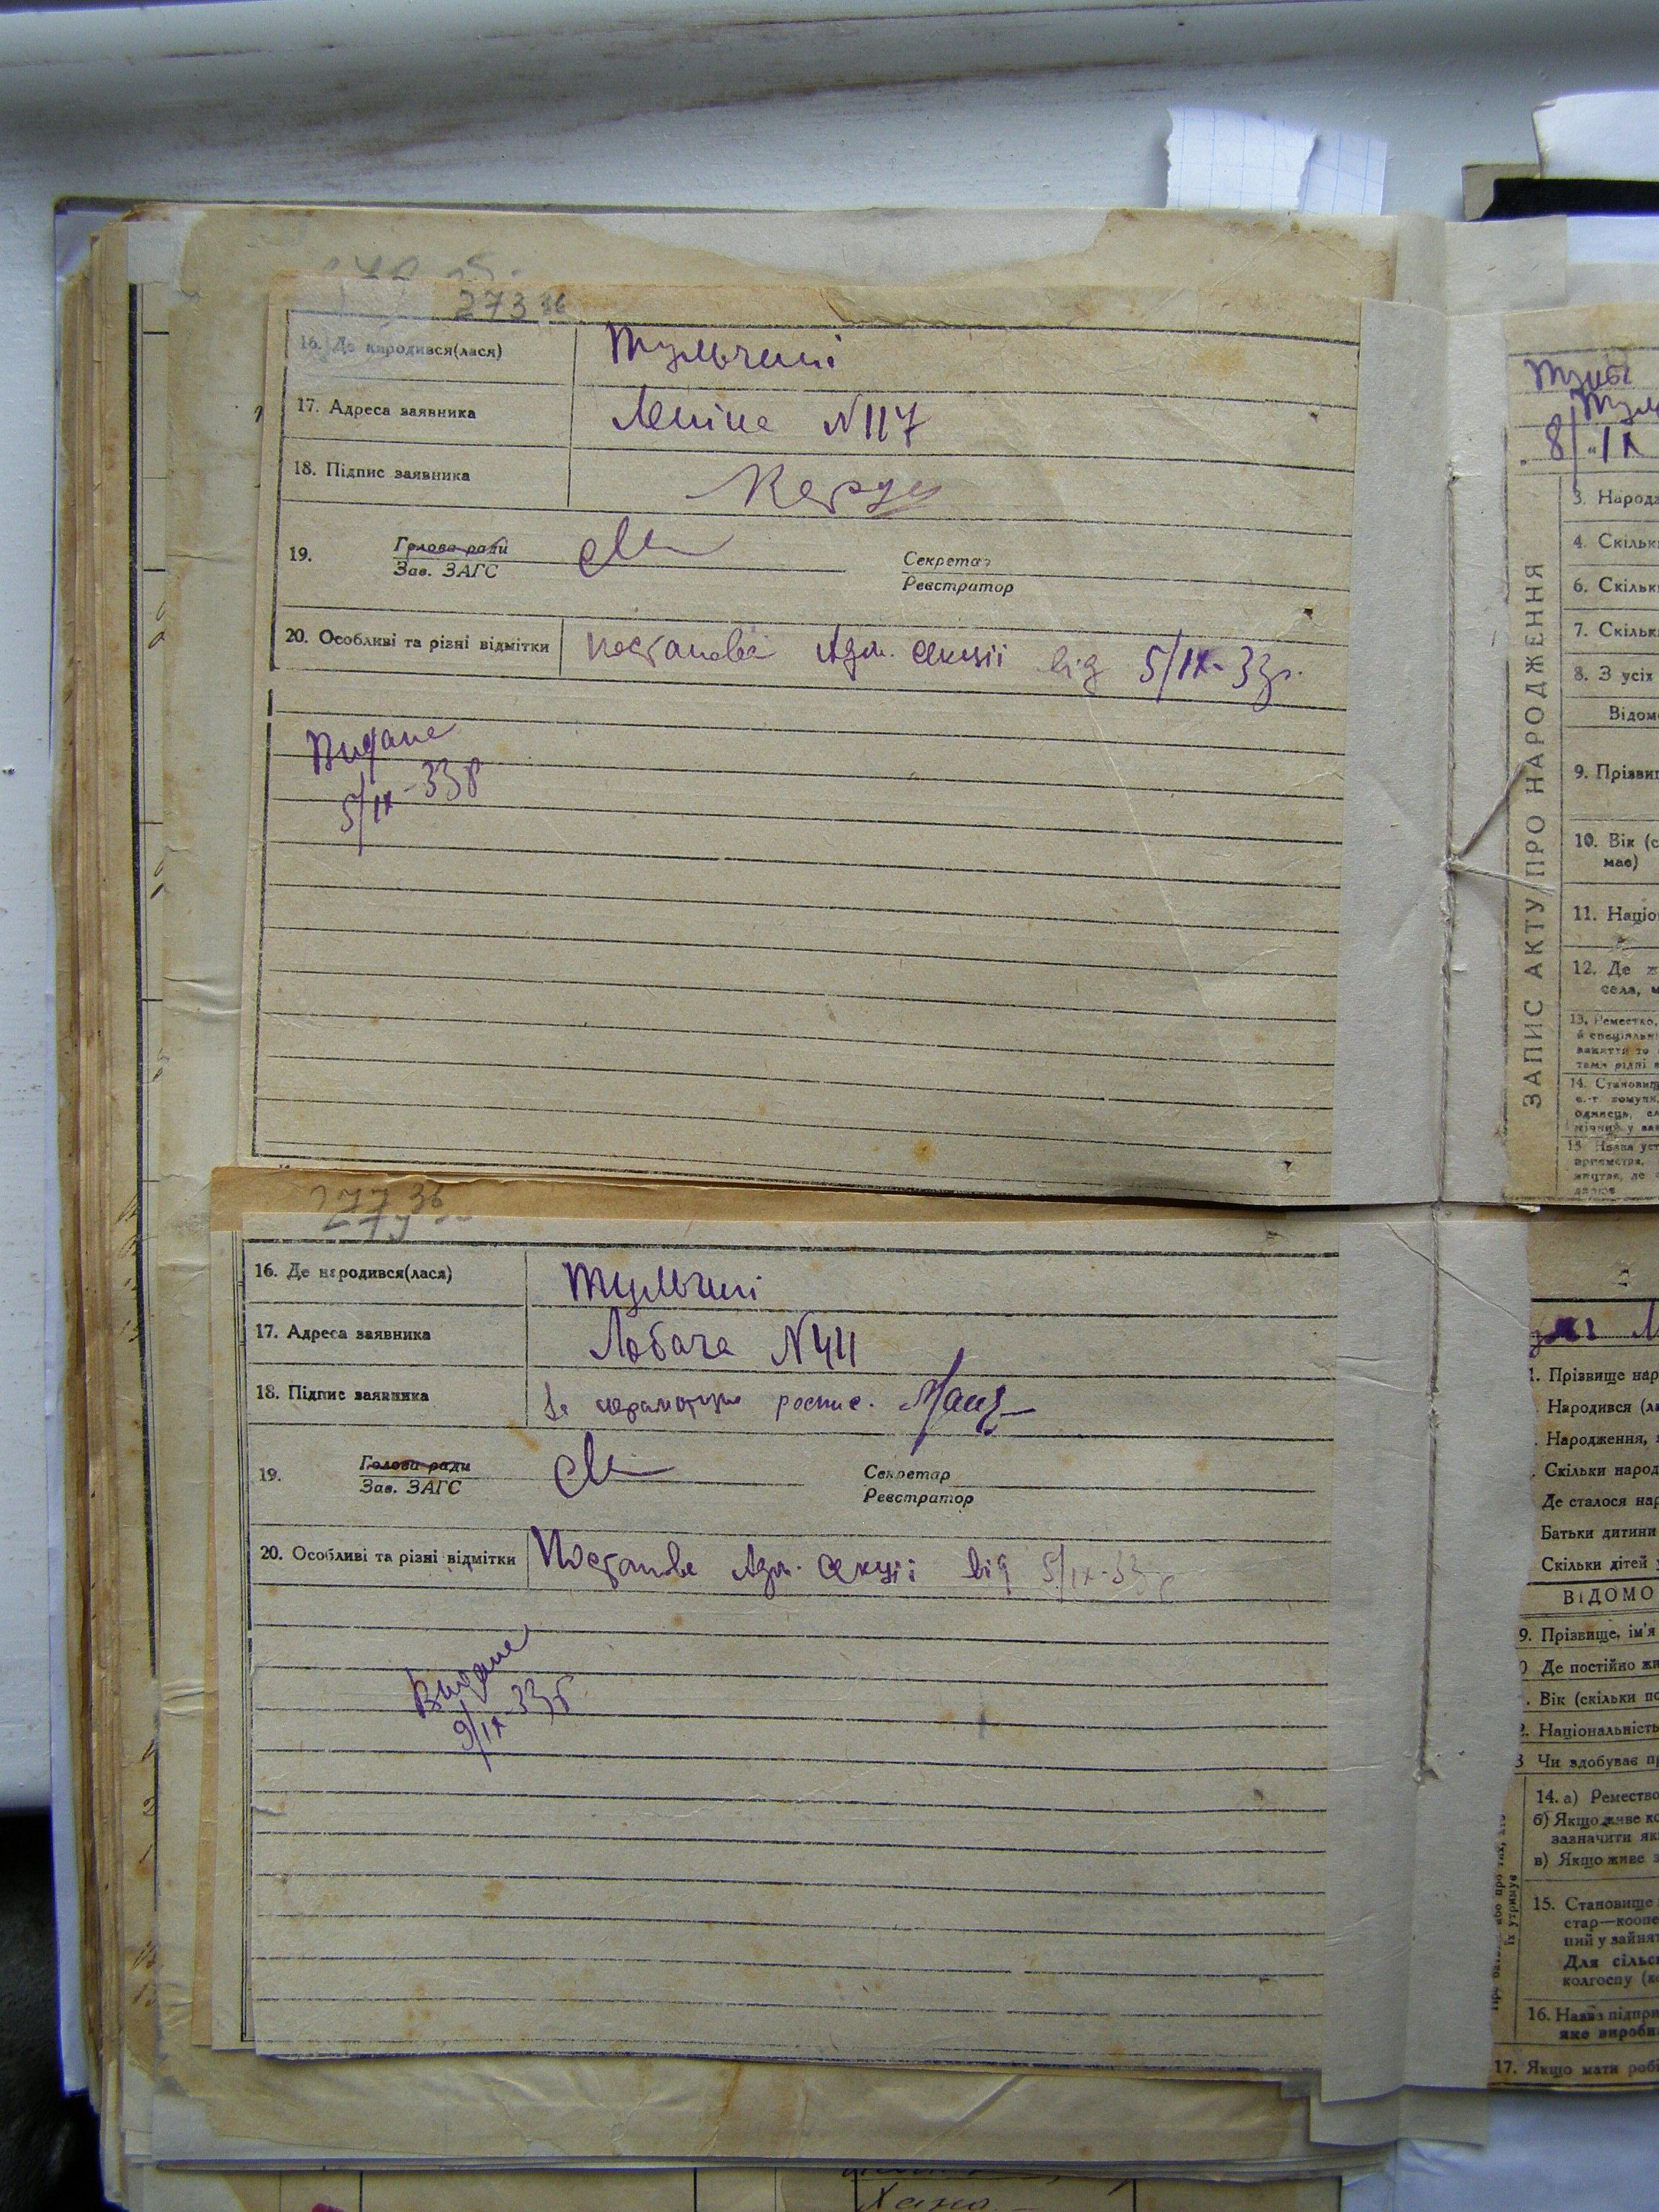 273 36
16. Де народився(лася) Тульчині
17. Адреса заявника Леніна N 117
18. Підпис заявника
19. Голова ради
Зав. ЗАГС
Секретар
Реєстратор
20. Особливі та різні відмітки Постанова Адм. секції від 5/IX-33р.
Видане
5/IX-33р
277 36
16. Де народився(лася) Тульчині
17. Адреса заявника N 44
18. Підпис заявника За неграмотную роспис.
19. Голова ради
Зав. ЗАГС
Секретар
Реєстратор
20. Особливі та різні відмітки Постанова Адм. секції від 5/IX-33р
Видане
9/IX-33р
8/IX
ЗАПИС АКТУ ПРО НАРОДЖЕННЯ
3. Народ
4. Скільк
6. Скільк
7. Скільк
8. З усіх
Відом
9. Прізви
10. Вік (с
має)
11. Націо
12. Де ж
села, м
13. Ремество,
14. Станови
15 Назва уст
1. Прізвище нар
Народився (ла
Народження,
Скільки народ
Де сталося нар
Батьки дитини
Скільки дітей
ВІДОМО
9. Прізвище, ім'я
Де постійно жи
Вік (скільки по
Національність
Чи здобуває п
14. а) Ремество
б) Якщо живе ко
зазначити як
в) Якщо живе з
15. Становище
стар—коопе
ний у зайнят
Для сільс
колгоспу (к
16. Назва підпри
яке вироби
17. Якщо мати робі
їх утримує
Хана